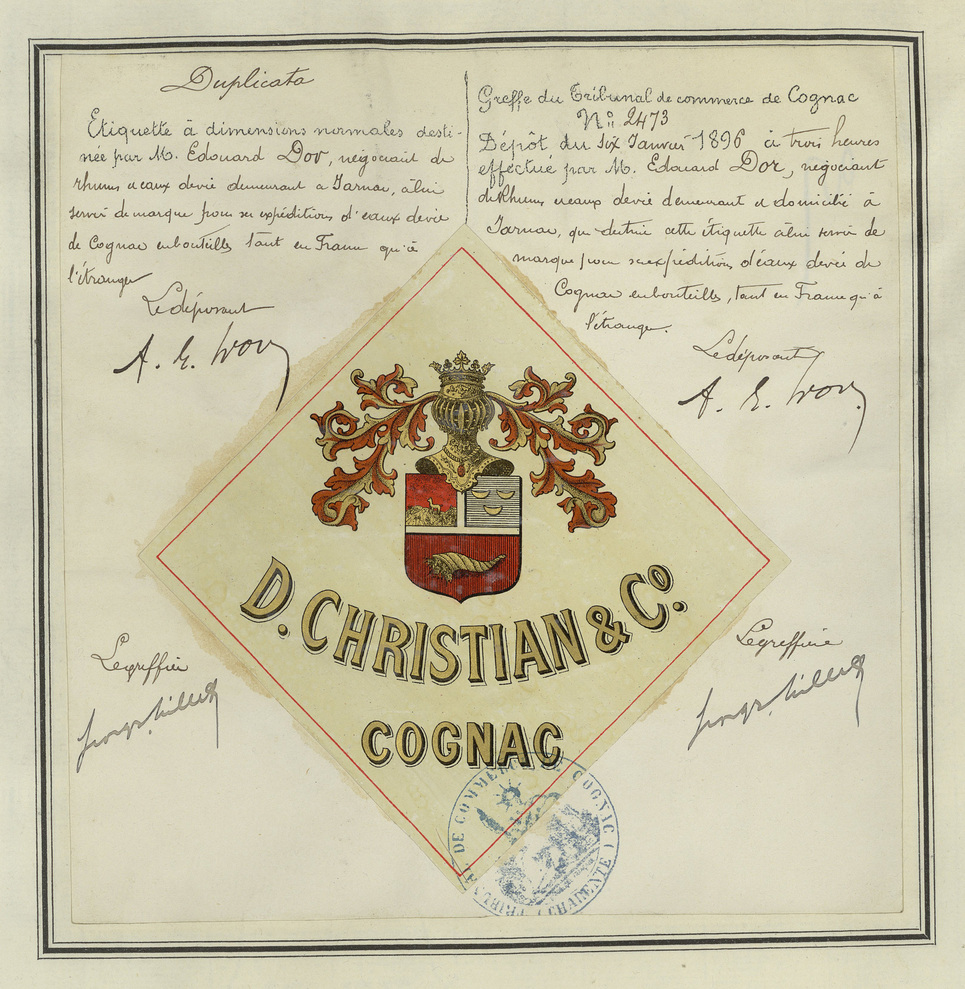 Duplicata
Etiquette à dimensions normales desti-
née par M. Edouard Dor, négociant de
rhums et eaux devie demeurant a Jarnac, àlui
servir de marque pour ses expéditions d'eaux devie
de Cognac enbouteilles tant en France qu'à
l'étranger
Ledéposant
A. E. Dor
Greffe du Tribunal de commerce de Cognac
No 2473
Dépôt du six Janvier 1896 à trois heures
effectué par M. Edouard Dor, négociant
deRhums eteaux devie demeurant et domicilié à
Jarnac, qui destine cette étiquette àlui servir de
marque pour sesexpéditions d'eaux devie de
Cognac enbouteilles, tant en France qu'à
l'étranger.
Ledéposant
A. E. Dor
D. CHRISTIAN & Co.
COGNAC
Legreffier
Legreffier
TRIBUNAL DE COMMERCE DE COGNAC (CHARENTE)